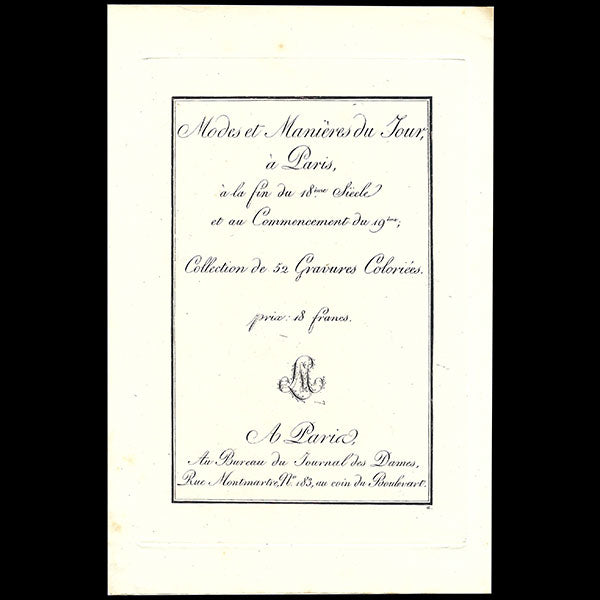 Modes et Manières du Jour,
à Paris,
à la fin du 18ème Siècle
et au Commencement du 19ème;
Collection de 52 Gravures Coloriées.
prix: 18 francs.
A Paris,
Au Bureau du Journal des Dames,
Rue Montmartre, No. 183, au coin du Boulevart.